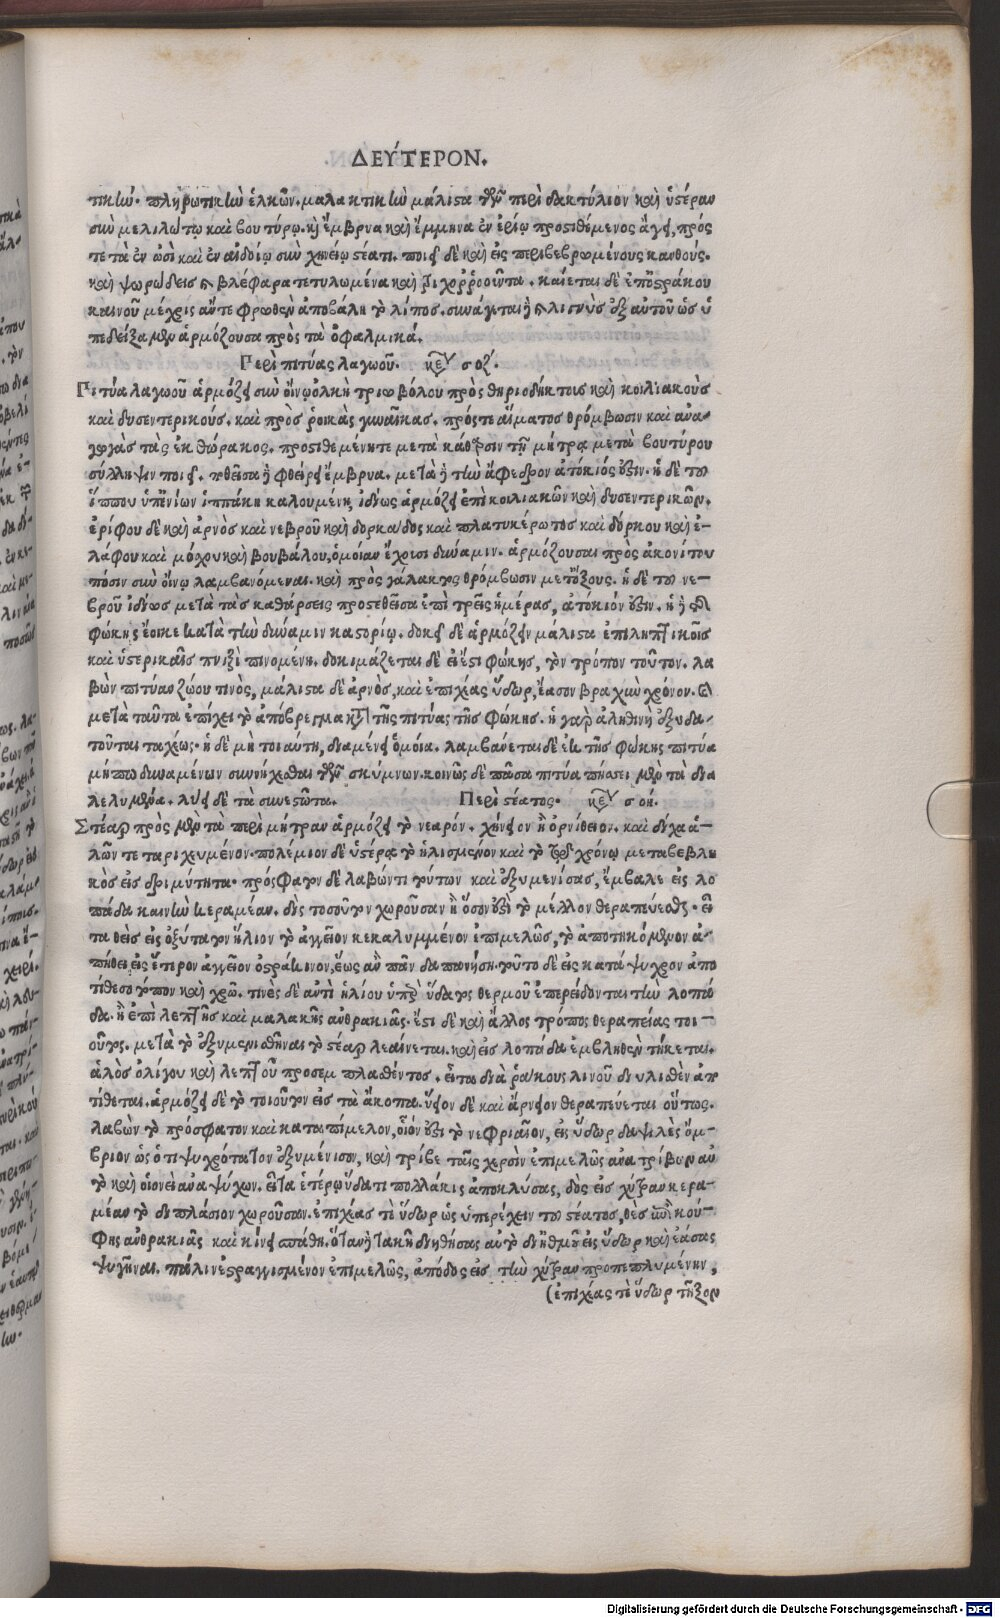 ΔΕΥΤΕΡΟΝ.
τικὴν. πληρωτικὴν ἑλκῶν. μαλακτικὴν μάλιστα τῶν περὶ δακτύλιον καὶ ὑστέραν
σὺν μελιλώτῳ καὶ βουτύρῳ. καὶ ἔμβρυα καὶ ἔμμηνα ἐν ἐρίῳ προστιθέμενος ἄγει, πρός
τε τὰ ἐν ὠσὶ καὶ ἐν αἰδοίῳ σὺν χηνείῳ στέατι. ποιεῖ δὲ καὶ εἰς περιβεβρωμένους κανθούς.
καὶ ψωρώδεις καὶ βλέφαρα τετυλωμένα καὶ τριχορροοῦντα. καίεται δὲ ἐπ' ὀστράκου
καινοῦ μέχρις ἂν τεφρωθὲν ἀποβάλῃ τὸ λίπος. συνάγεται δὲ καὶ λιγνὺς ἐξ αὐτοῦ ὡς ὑ
πεδείξαμεν ἁρμόζουσα πρὸς τὰ ὀφθαλμικά.
Περὶ πιτύας λαγωοῦ. κεφ σοζ.
Πιτύα λαγωοῦ ἁρμόζει σὺν οἴνῳ ὁλκὴ τριωβόλου πρὸς θηριοδήκτοις καὶ κοιλιακοὺς
καὶ δυσεντερικούς. καὶ πρὸς ῥοικὰς γυναῖκας. πρός τε αἵματος θρόμβωσιν καὶ ἀνα-
γωγὰς τὰς ἐκ θώρακος. προστιθεμένη τε μετὰ κάθαρσιν τῇ μήτρᾳ μετὰ βουτύρου
σύλληψιν ποιεῖ. ποθεῖσα δὲ φθείρει ἔμβρυα. μετὰ δὲ τὴν ἄφεδρον ἀτόκιός ἐστιν. ἡ δὲ τοῦ
ἵππου ὑπ' ἐνίων ἱππάκη καλουμένη ἰδίως ἁρμόζει ἐπὶ κοιλιακῶν καὶ δυσεντερικῶν.
ἐρίφου δὲ καὶ ἀρνὸς καὶ νεβροῦ καὶ δορκάδος καὶ πλατυκέρωτος καὶ δόρκου καὶ ἐ-
λάφου καὶ μόσχου καὶ βουβάλου, ὁμοίαν ἔχουσι δύναμιν. ἁρμόζουσαι πρὸς ἀκονίτου
πόσιν σὺν οἴνῳ λαμβανόμεναι. καὶ πρὸς γάλακτος θρόμβωσιν μετ' ὄξους. ἡ δὲ τοῦ νε-
βροῦ ἰδίως μετὰ τὰς καθάρσεις προστεθεῖσα ἐπὶ τρεῖς ἡμέρας, ἀτόκιόν ἐστιν. ἡ δὲ τῆς
φώκης ἔοικε κατὰ τὴν δύναμιν καστορίῳ. δοκεῖ δὲ ἁρμόζειν μάλιστα ἐπιληπτικοῖς
καὶ ὑστερικαῖς πνιξὶ πινομένη. δοκιμάζεται δὲ εἰ ἔστι φώκης, τὸν τρόπον τοῦτον. λα
βὼν πιτύαν ζώου τινὸς, μάλιστα δὲ ἀρνὸς, καὶ ἐπιχέας ὕδωρ, ἔασον βραχὺν χρόνον. καὶ
μετὰ ταῦτα ἐπίχει τὸ ἀπόβρεγμα κατὰ τῆς πιτύας τῆς φώκης. ἡ γὰρ ἀληθινὴ ἐξυδα-
τοῦται ταχέως. ἡ δὲ μὴ τοιαύτη, διαμένει ὁμοία. λαμβάνεται δὲ ἐκ τῆς φώκης πιτύα
μήπω δυναμένων συννήχεσθαι τῶν σκύμνων. κοινῶς δὲ πᾶσα πιτύα πήσσει μὲν τὰ δια
λελυμένα. λύει δὲ τὰ συνεστῶτα. Περὶ στέατος. κεφ σοη.
Στέαρ πρὸς μὲν τὰ περὶ μήτραν ἁρμόζει τὸ νεαρόν. χήνειον ἢ ὀρνίθειον. καὶ δίχα ἁ-
λῶν τεταριχευμένον. πολέμιον δὲ ὑστέρᾳ τὸ ἡλισμένον καὶ τὸ τῷ χρόνῳ μεταβεβλη
κὸς εἰς δριμύτητα. πρόσφατον δὲ λαβών τι τούτων καὶ ἐξυμενίσας, ἔμβαλε εἰς λο
πάδα καινὴν κεραμέαν. δὶς τοσοῦτον χωροῦσαν ἢ ὅσον ἐστὶ τὸ μέλλον θεραπεύεσθαι. εἶ
τα θεὶς εἰς ὀξύτατον ἥλιον τὸ ἀγγεῖον κεκαλυμμένον ἐπιμελῶς, τὸ ἀποτηκόμενον ἀ-
πήθει εἰς ἕτερον ἀγγεῖον ὀστράκινον, ἕως ἂν πᾶν δαπανήσῃ. τοῦτο δὲ εἰς κατάψυχρον ἀπο
τίθεσο τόπον καὶ χρῶ. τινὲς δὲ ἀντὶ ἡλίου ὑπὲρ ὕδατος θερμοῦ ἐπερείδονται τὴν λοπά
δα. ἢ ἐπὶ λεπτῆς καὶ μαλακῆς ἀνθρακιᾶς. ἔστι δὲ καὶ ἄλλος τρόπος θεραπείας τοι-
οῦτος. μετὰ τὸ ἐξυμενισθῆναι τὸ στέαρ λεαίνεται. καὶ εἰς λοπάδα ἐμβληθὲν τήκεται.
ἁλὸς ὀλίγου καὶ λεπτοῦ προσεμπλασθέντος. εἶτα διὰ ῥάκους λινοῦ διυλισθὲν ἀπο
τίθεται. ἁρμόζει δὲ τὸ τοιοῦτον εἰς τὰ ἄκοπα. ὕειον δὲ καὶ ἄρνειον θεραπεύεται οὕτως.
λαβὼν τὸ πρόσφατον καὶ καταπίμελον, οἷόν ἐστι τὸ νεφριαῖον, εἰς ὕδωρ δαψιλὲς ὄμ-
βριον ὡς ὅτι ψυχρότατον ἐξυμένισον, καὶ τρίβε ταῖς χερσὶν ἐπιμελῶς ἀνατρίβων αὐ
τὸ καὶ οἱονεὶ ἀναψύχων. εἶτα ἑτέρῳ ὕδατι πολλάκις ἀποκλύσας, δὸς εἰς χύτραν κερα-
μέαν τὸ διπλάσιον χωροῦσαν. ἐπιχέας τὸ ὕδωρ ὡς ὑπερέχειν τοῦ στέατος, θὲς ἐπὶ κού-
φης ἀνθρακιᾶς καὶ κίνει σπάθῃ. ὅταν δὲ τακῇ διηθήσας αὐτὸ δι' ἠθμοῦ εἰς ὕδωρ καὶ ἐάσας
ψυγῆναι. πάλιν ἐστραγγισμένον ἐπιμελῶς, ἀπόδος εἰς τὴν χύτραν προπεπλυμένην,
(ἐπιχέας τὸ ὕδωρ τῆξον
Digitalisierung gefördert durch die Deutsche Forschungsgemeinschaft - DFG